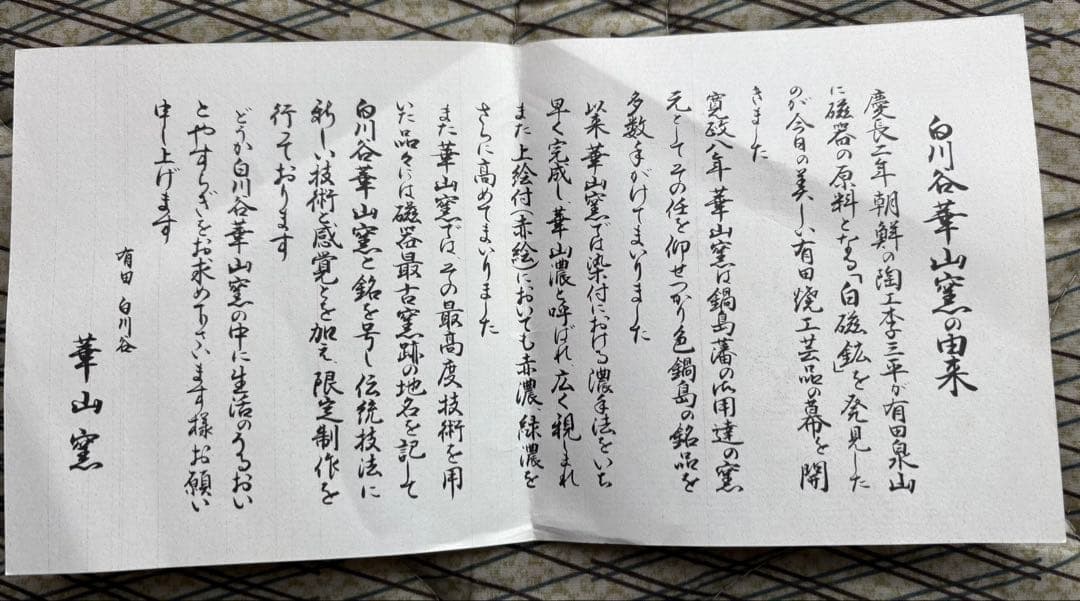 白川谷華山窯の由来
慶長二年 朝鮮の陶工李三平が有田泉山
に磁器の原料となる「白磁鉱」を発見した
のが今日の美しい有田焼工芸品の幕を開
きました
寛政八年 華山窯は鍋島藩の御用達の窯
元としてその任を仰せつかり色鍋島の銘品を
多数手がけてまいりました
以来 華山窯では染付における濃手法をいち
早く完成し、華山濃と呼ばれ、広く親しまれ
また上絵付(赤絵)においても赤濃、緑濃を
さらに高めてまいりました
また華山窯では、その最高度技術を用
いた品々には磁器最古窯跡の地名を記して
白川谷華山窯と銘を号し伝統技法に
新しい技術と感覚とを加え、限定制作を
行っております
どうか白川谷華山窯の中に生活のうるおい
とやすらぎをお求め下さいます様お願い
申し上げます
有田 白川谷
華山窯